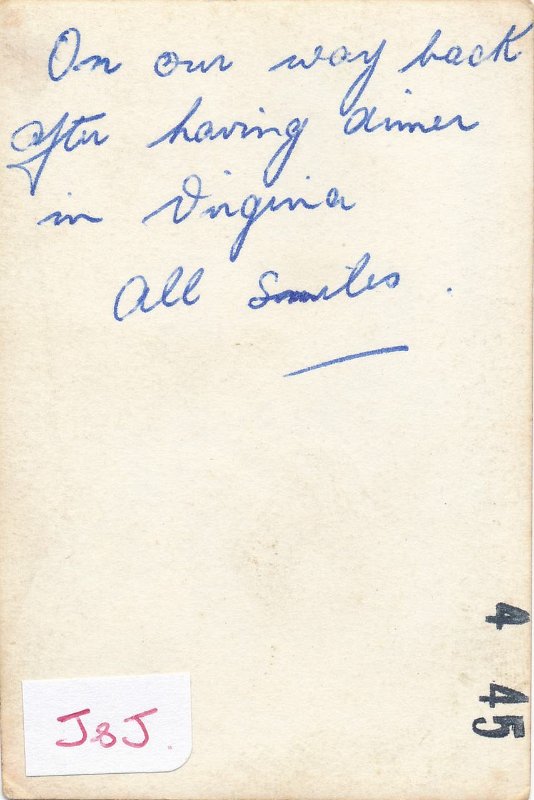 On our way back
after having dinner
in Virginia
All Smiles.
4
45
J&J.